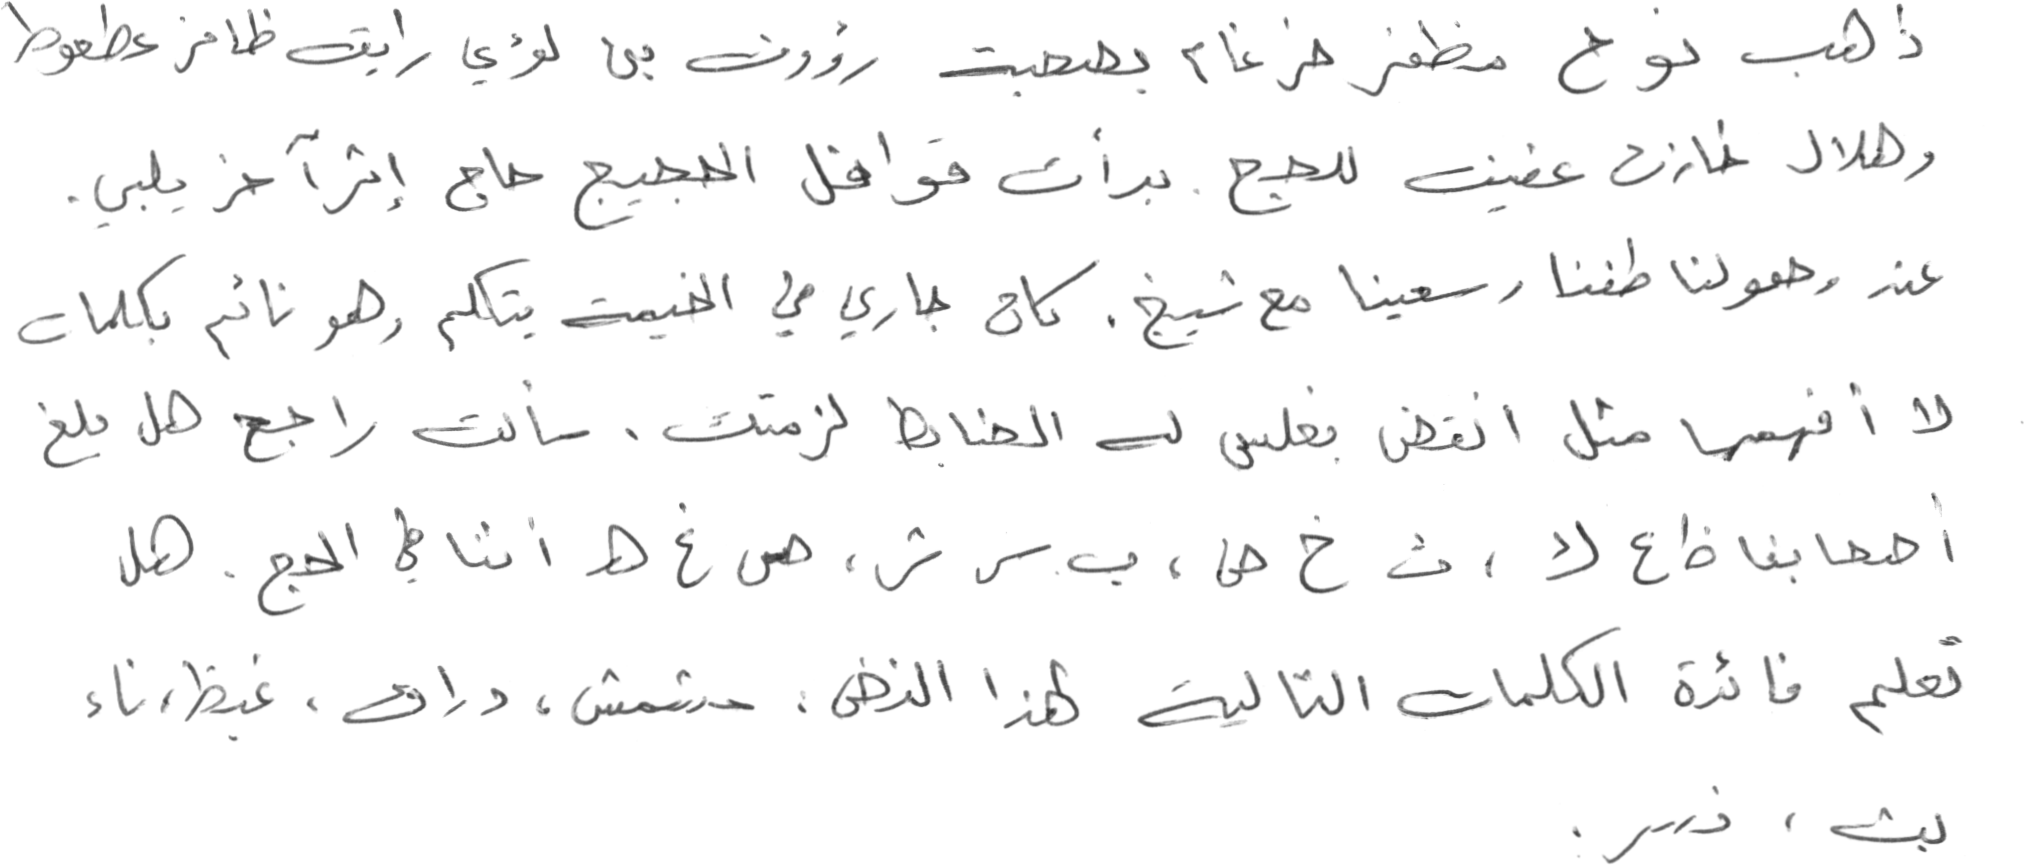 ذهب نوح مظفر ضرغام بصحبة رؤوف بن لؤي رايق ظافر عطعوط
وهلال خازن عفيف للحج. بدأت قوافل الحجيج حاج إثر آخر يلبي.
عند وصولنا طفنا وسعينا مع شيخ. كان جاري في الخيمة يتكلم وهو نائم بكلمات
لا أفهمها مثل انقض بغلس لب الضابط لزمتك. سألت راجح هل بلغ
أصحابنا ظ ع لا ، ث خ ض ، ب س ش ، ص غ ط أثنا في الحج. هل
تعلم فائدة الكلمات التالية لهذا النض: مشمش، دراق، غيظ، ناء
بث ، ذرر.